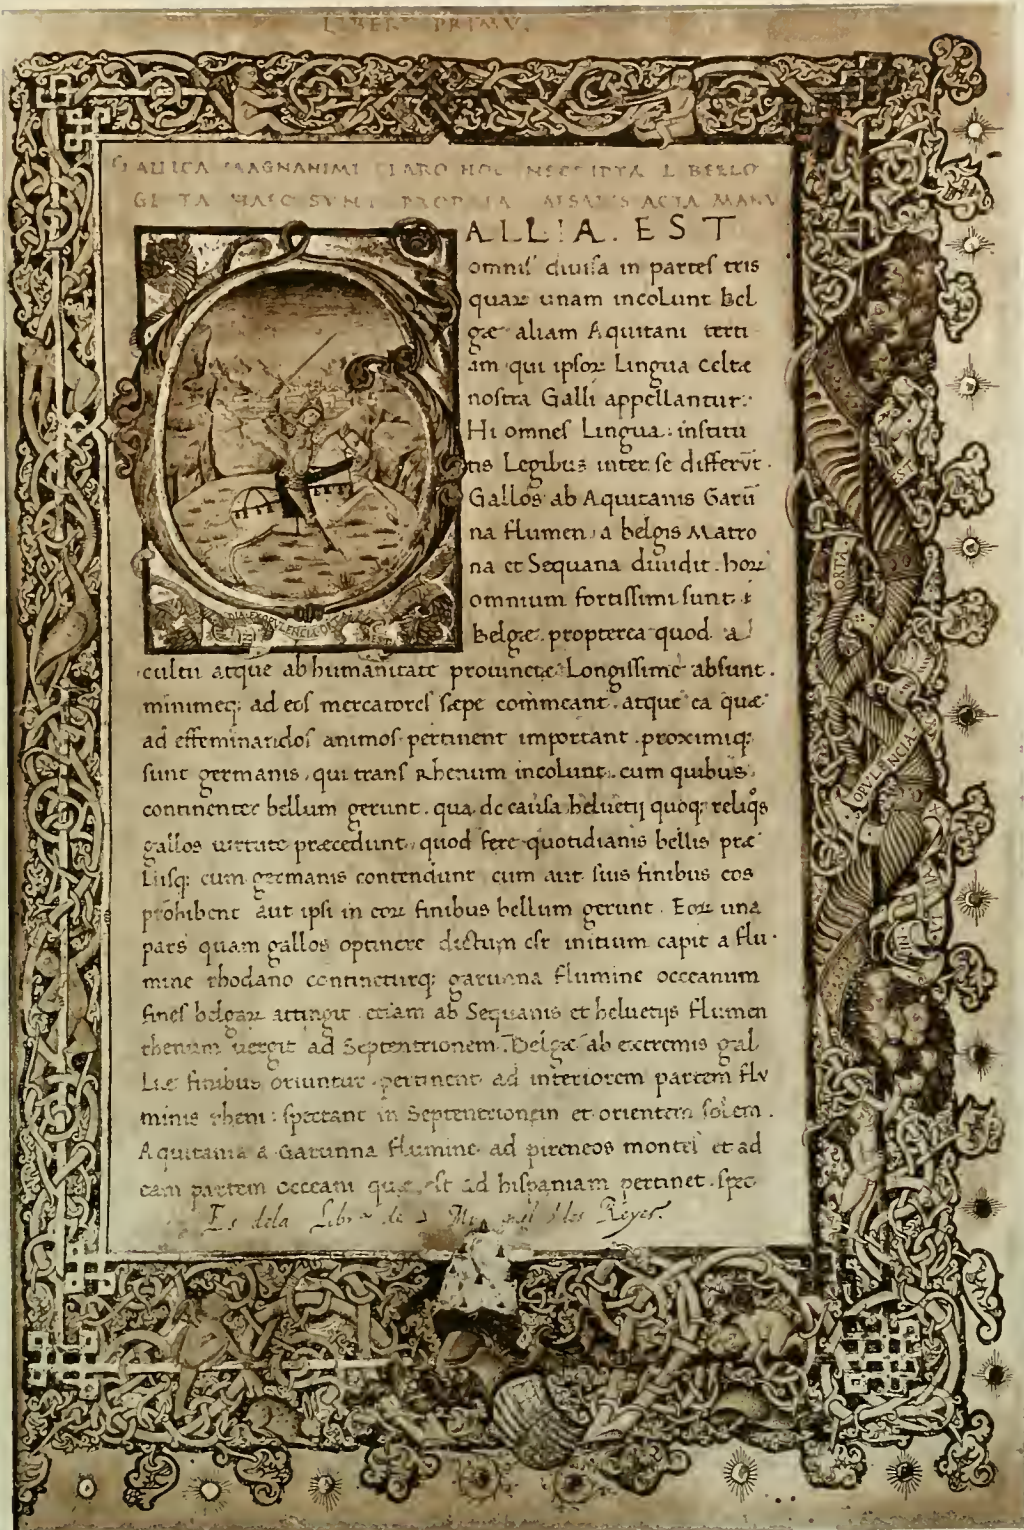 LIBER PRIMV.
GALLICA MAGNANIMI CLARO HOC LIBELLO
GESTA HAEC SVNT PROPRIA ACTA MANV
ALLIA. EST
omniſ diuiſa in parteſ tris
quaꝝ unam incolunt Bel
gæ aliam Aquitani terti
am qui ipſoꝝ Lingua Celtæ
noſtra Galli appellantur:
Hi omneſ Lingua: inſtitu
tis Legibus inter ſe differūt.
Gallos ab Aquitanis Garū
na flumen, a belgis Matro
na et Sequana diuidit. hoꝝ
omnium fortiſſimi ſunt
Belgæ. propterea quod a
cultu atque ab humanitate prouinciæ Longiſſime abſunt.
minimeq; ad eoſ mercatoreſ ſæpe commeant. atque ea quæ
ad effeminandoſ animoſ pertinent important. proximiq;
ſunt germanis, qui tranſ Rhenum incolunt. cum quibus
continenter bellum gerunt. qua de cauſa heluetij quoq; reliq̊s
gallos uirtute præcedunt, quod fere quotidianis bellis præ
Liiſq; cum germanis contendunt cum aut ſuis finibus eos
prohibent aut ipſi in eoꝝ finibus bellum gerunt. Eoꝝ una
pars quam gallos optinere dictum eſt initium capit a flu.
mine rhodano contineturq; garunna flumine occeanum
fineſ belgaꝝ attingit etiam ab Sequanis et heluetijs flumen
rhenum uergit ad Septentrionem. Belgæ ab extremis gal
Liæ finibus oriuntur. pertinent ad interiorem partem flu
minis rheni: ſpectant in Septentrionem et orientem ſolem.
Aquitania a Garunna flumine ad pireneos monteſ et ad
eam partem occeani quæ eſt ad hiſpaniam pertinet. ſpec
Es dela Libr de los Reyes.
EST
ORTA
OPVLENCIA